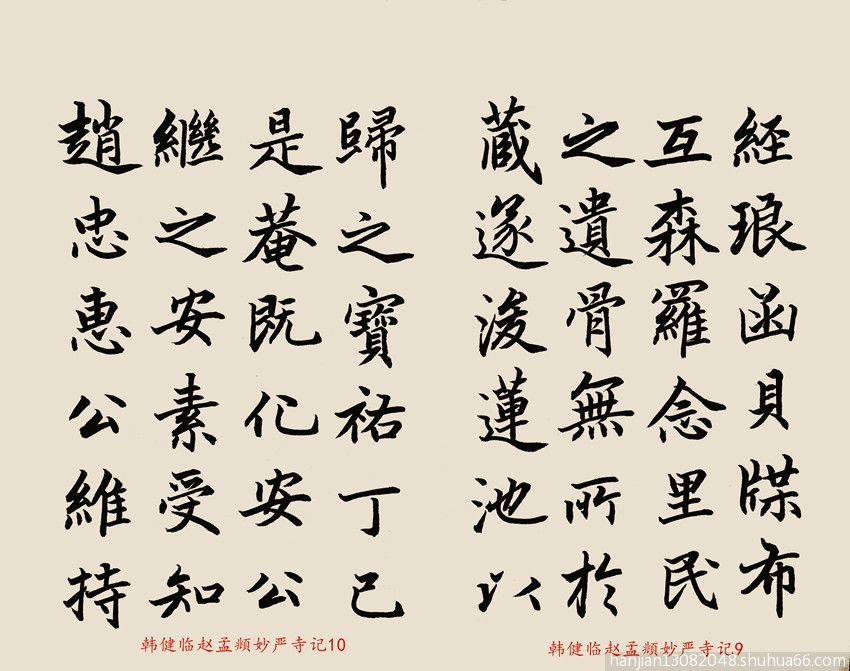 经琅函贝牒布
互森羅念里民
之遺骨無所於
藏遂浚蓮池以
韩健临赵孟頫妙严寺记9
歸之寶祐丁巳
是菴既化安公
繼之安素受知
趙忠惠公維持
韩健临赵孟頫妙严寺记10
hanjian13082048.shuhua66.com